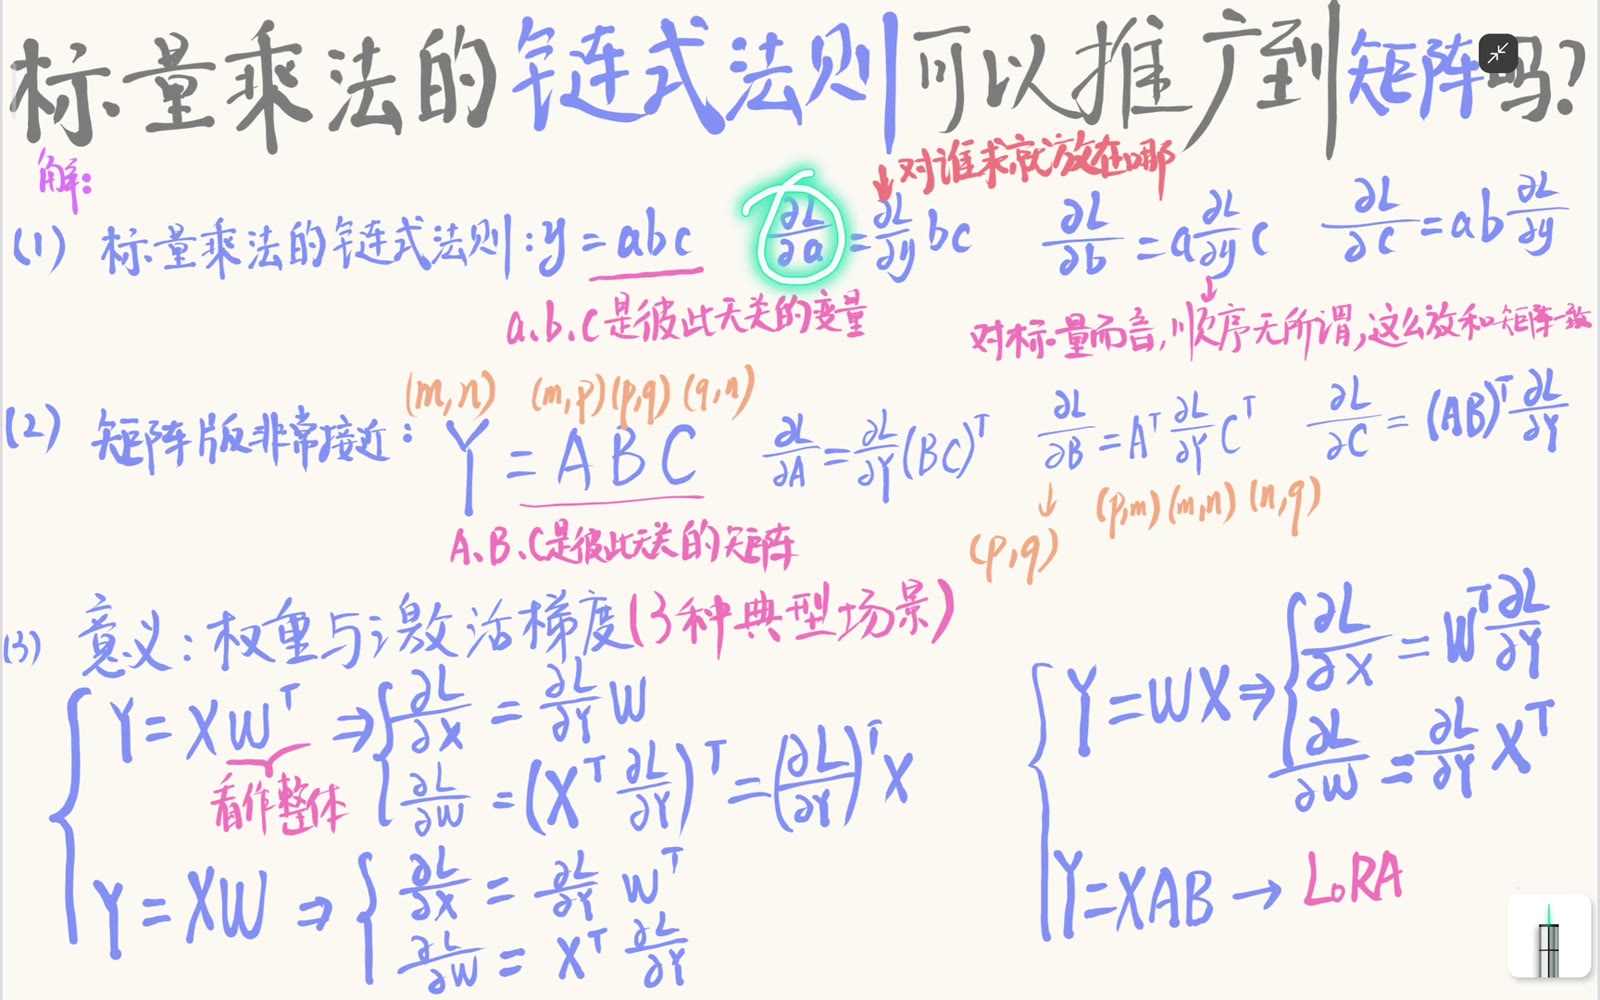 标量乘法的链式法则可以推广到矩阵吗?
解:
↓对谁求就放在哪
(1) 标量乘法的链式法则: y = abc ∂L/∂a = ∂L/∂y bc ∂L/∂b = a ∂L/∂y c ∂L/∂c = ab ∂L/∂y
a、b、c是彼此无关的变量
↓
对标量而言,顺序无所谓,这么放和矩阵一致
(m,n) (m,p)(p,q)(q,n)
(2) 矩阵版非常接近: Y = ABC ∂L/∂A = ∂L/∂Y (BC)^T ∂L/∂B = A^T ∂L/∂Y C^T ∂L/∂C = (AB)^T ∂L/∂Y
A、B、C是彼此无关的矩阵
↓ (p,m)(m,n)(n,q)
(p,q)
(3) 意义:权重与激活梯度(3种典型场景)
Y = XW^T ⇒ { ∂L/∂X = ∂L/∂Y W
∂L/∂W = (X^T ∂L/∂Y)^T = (∂L/∂Y)^T X
看作整体
Y = XW ⇒ { ∂L/∂X = ∂L/∂Y W^T
∂L/∂W = X^T ∂L/∂Y
Y = WX ⇒ { ∂L/∂X = W^T ∂L/∂Y
∂L/∂W = ∂L/∂Y X^T
Y = XAB → LoRA